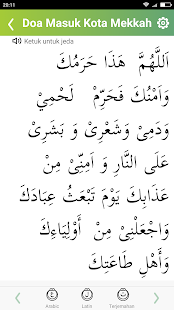 20:11
Doa Masuk Kota Mekkah
Ketuk untuk jeda
اَللَّهُمَّ هَذَا حَرَمُكَ
وَاَمْنُكَ فَحَرِّمْ لَحْمِيْ
وَدَمِيْ وَشَعْرِيْ وَ بَشَرِيْ
عَلَى النَّارِ وَ اَمِنِّيْ مِنْ
عَذَابِكَ يَوْمَ تَبْعَثُ عِبَادَكَ
وَاجْعَلْنِيْ مِنْ اَوْلِيَاءِكَ
وَاَهْلِ طَاعَتِكَ
Arabic Latin Terjemahan